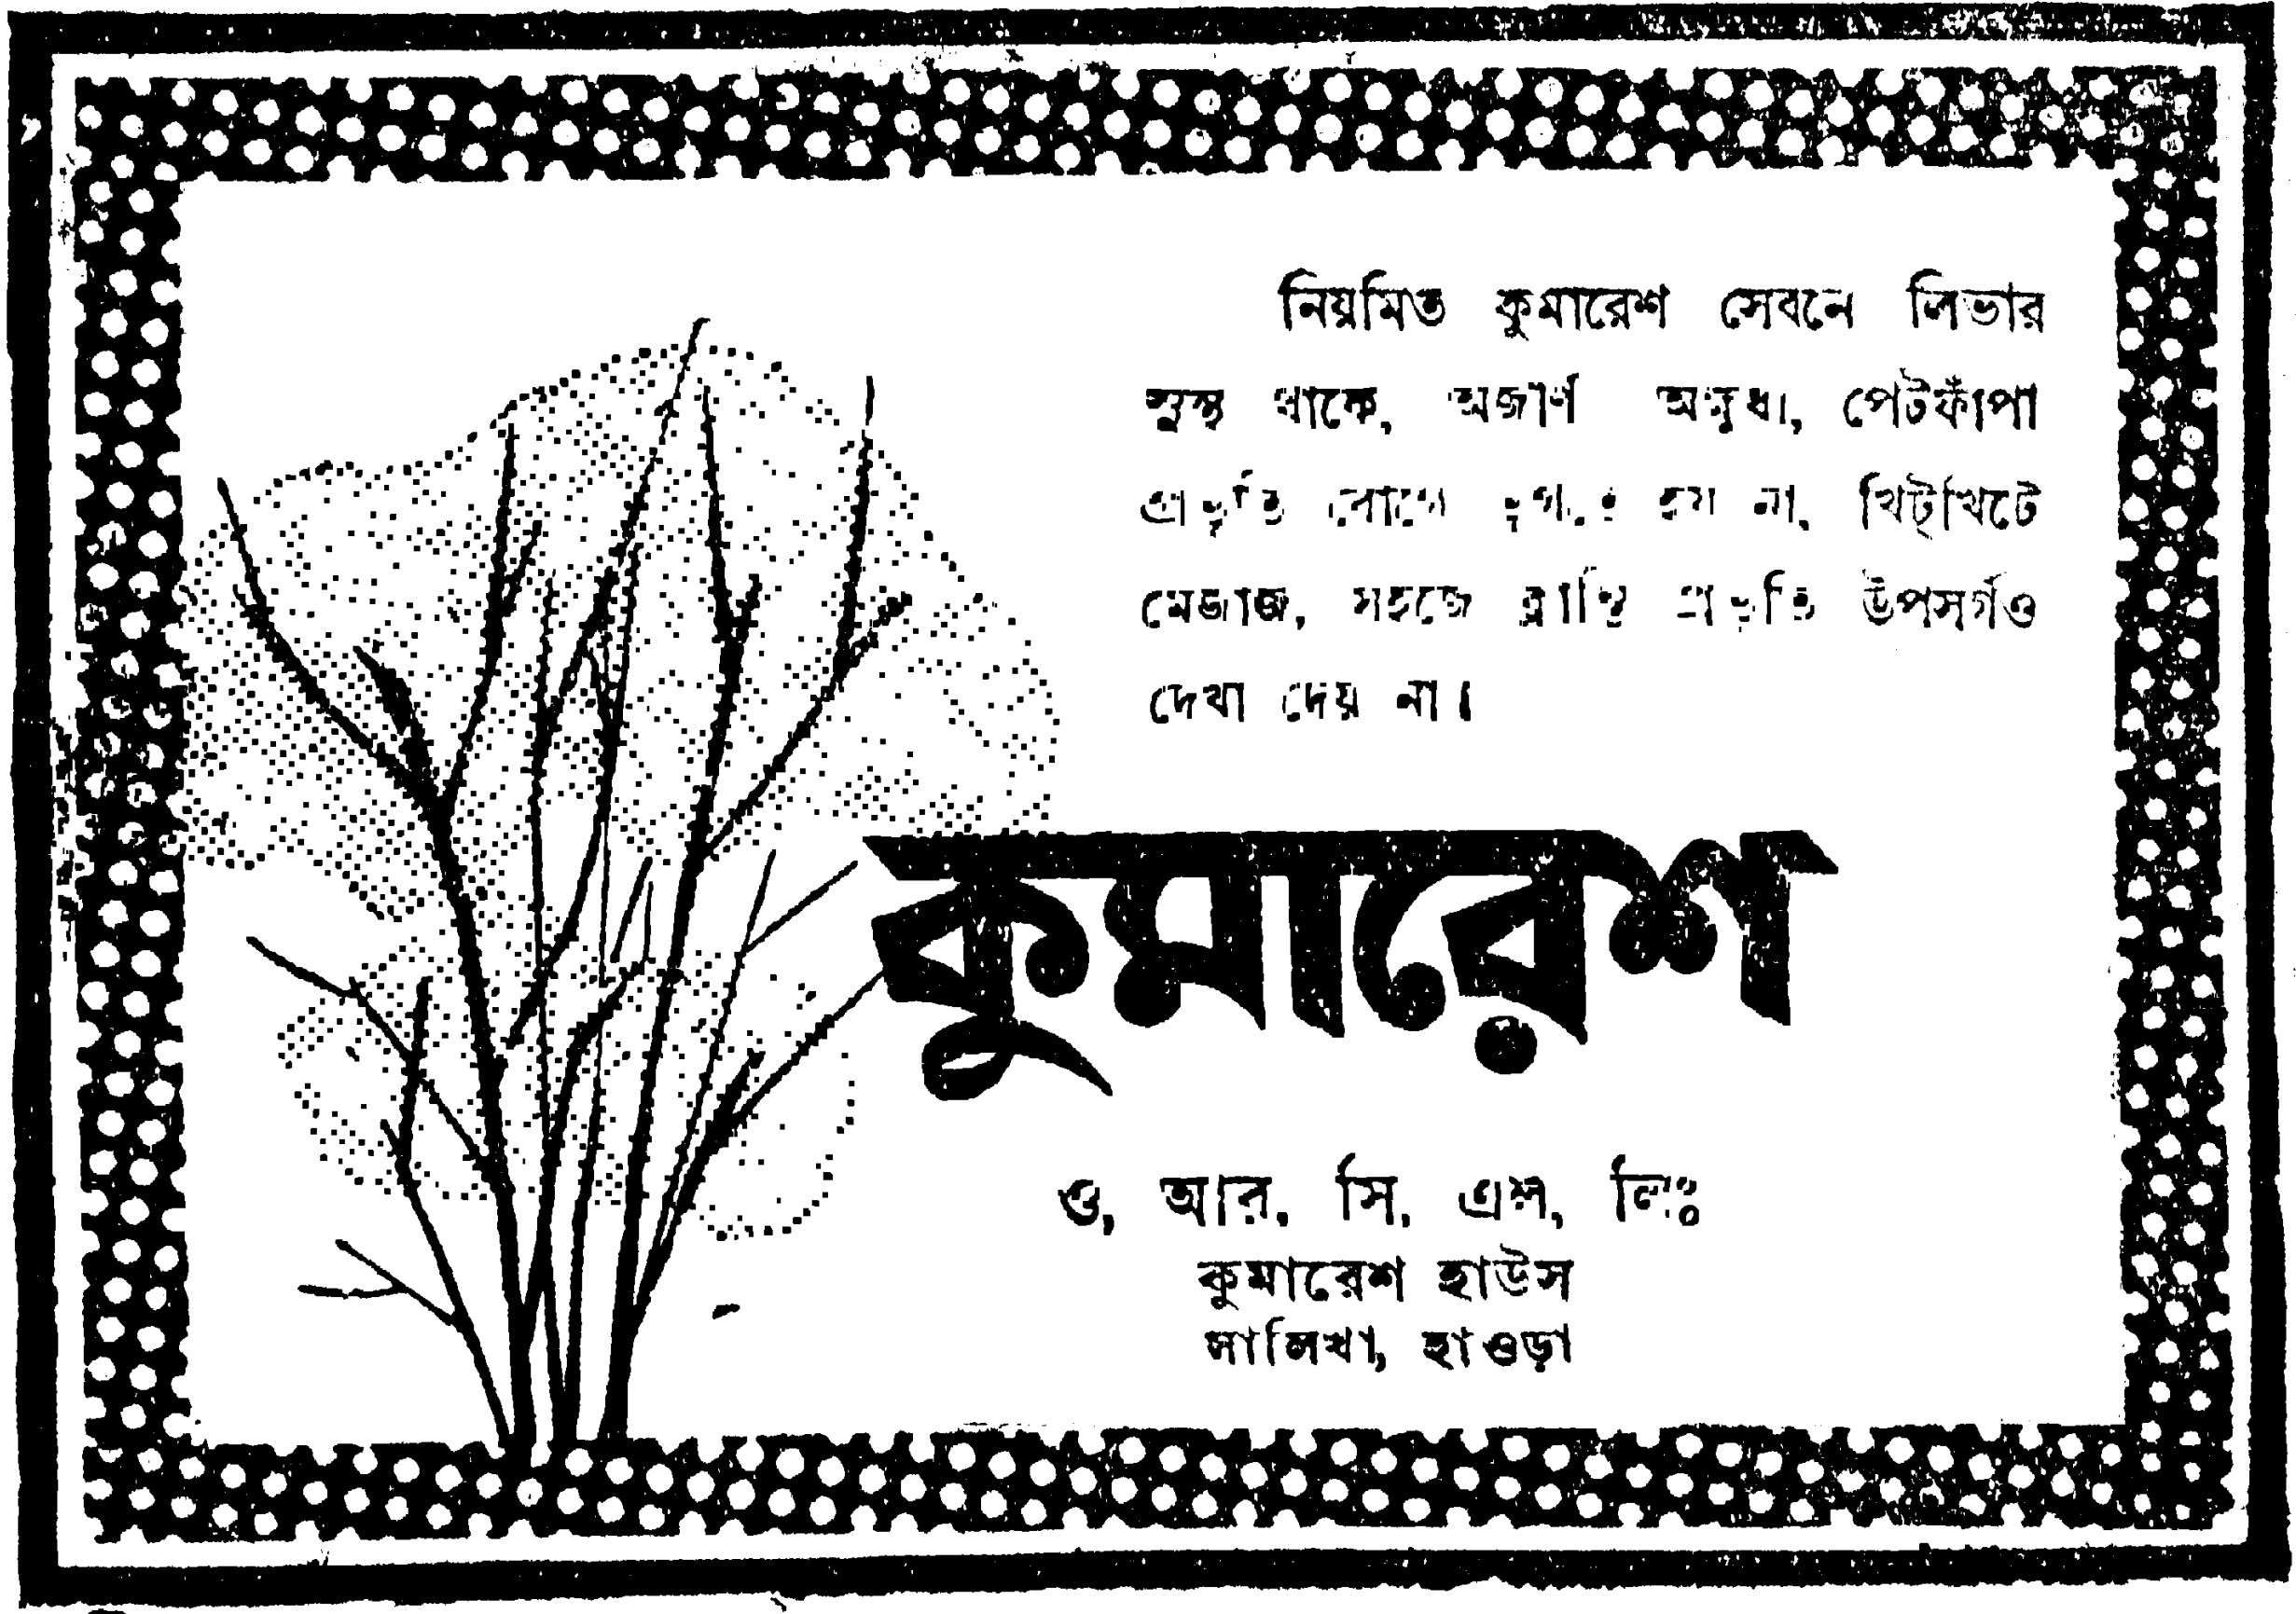 নিয়মিত কুমারেশ সেবনে লিভার
সুস্থ থাকে, অজীর্ণ অক্ষুধা, পেটফাঁপা
প্রভৃতি রোগে হয় না, খিট্‌খিটে
মেজাজ, সহজে ক্লান্তি প্রভৃতি উপসর্গও
দেখা দেয় না।
কুমারেশ
ও, আর, সি, এল, লিঃ
কুমারেশ হাউস
সালিখা, হাওড়া